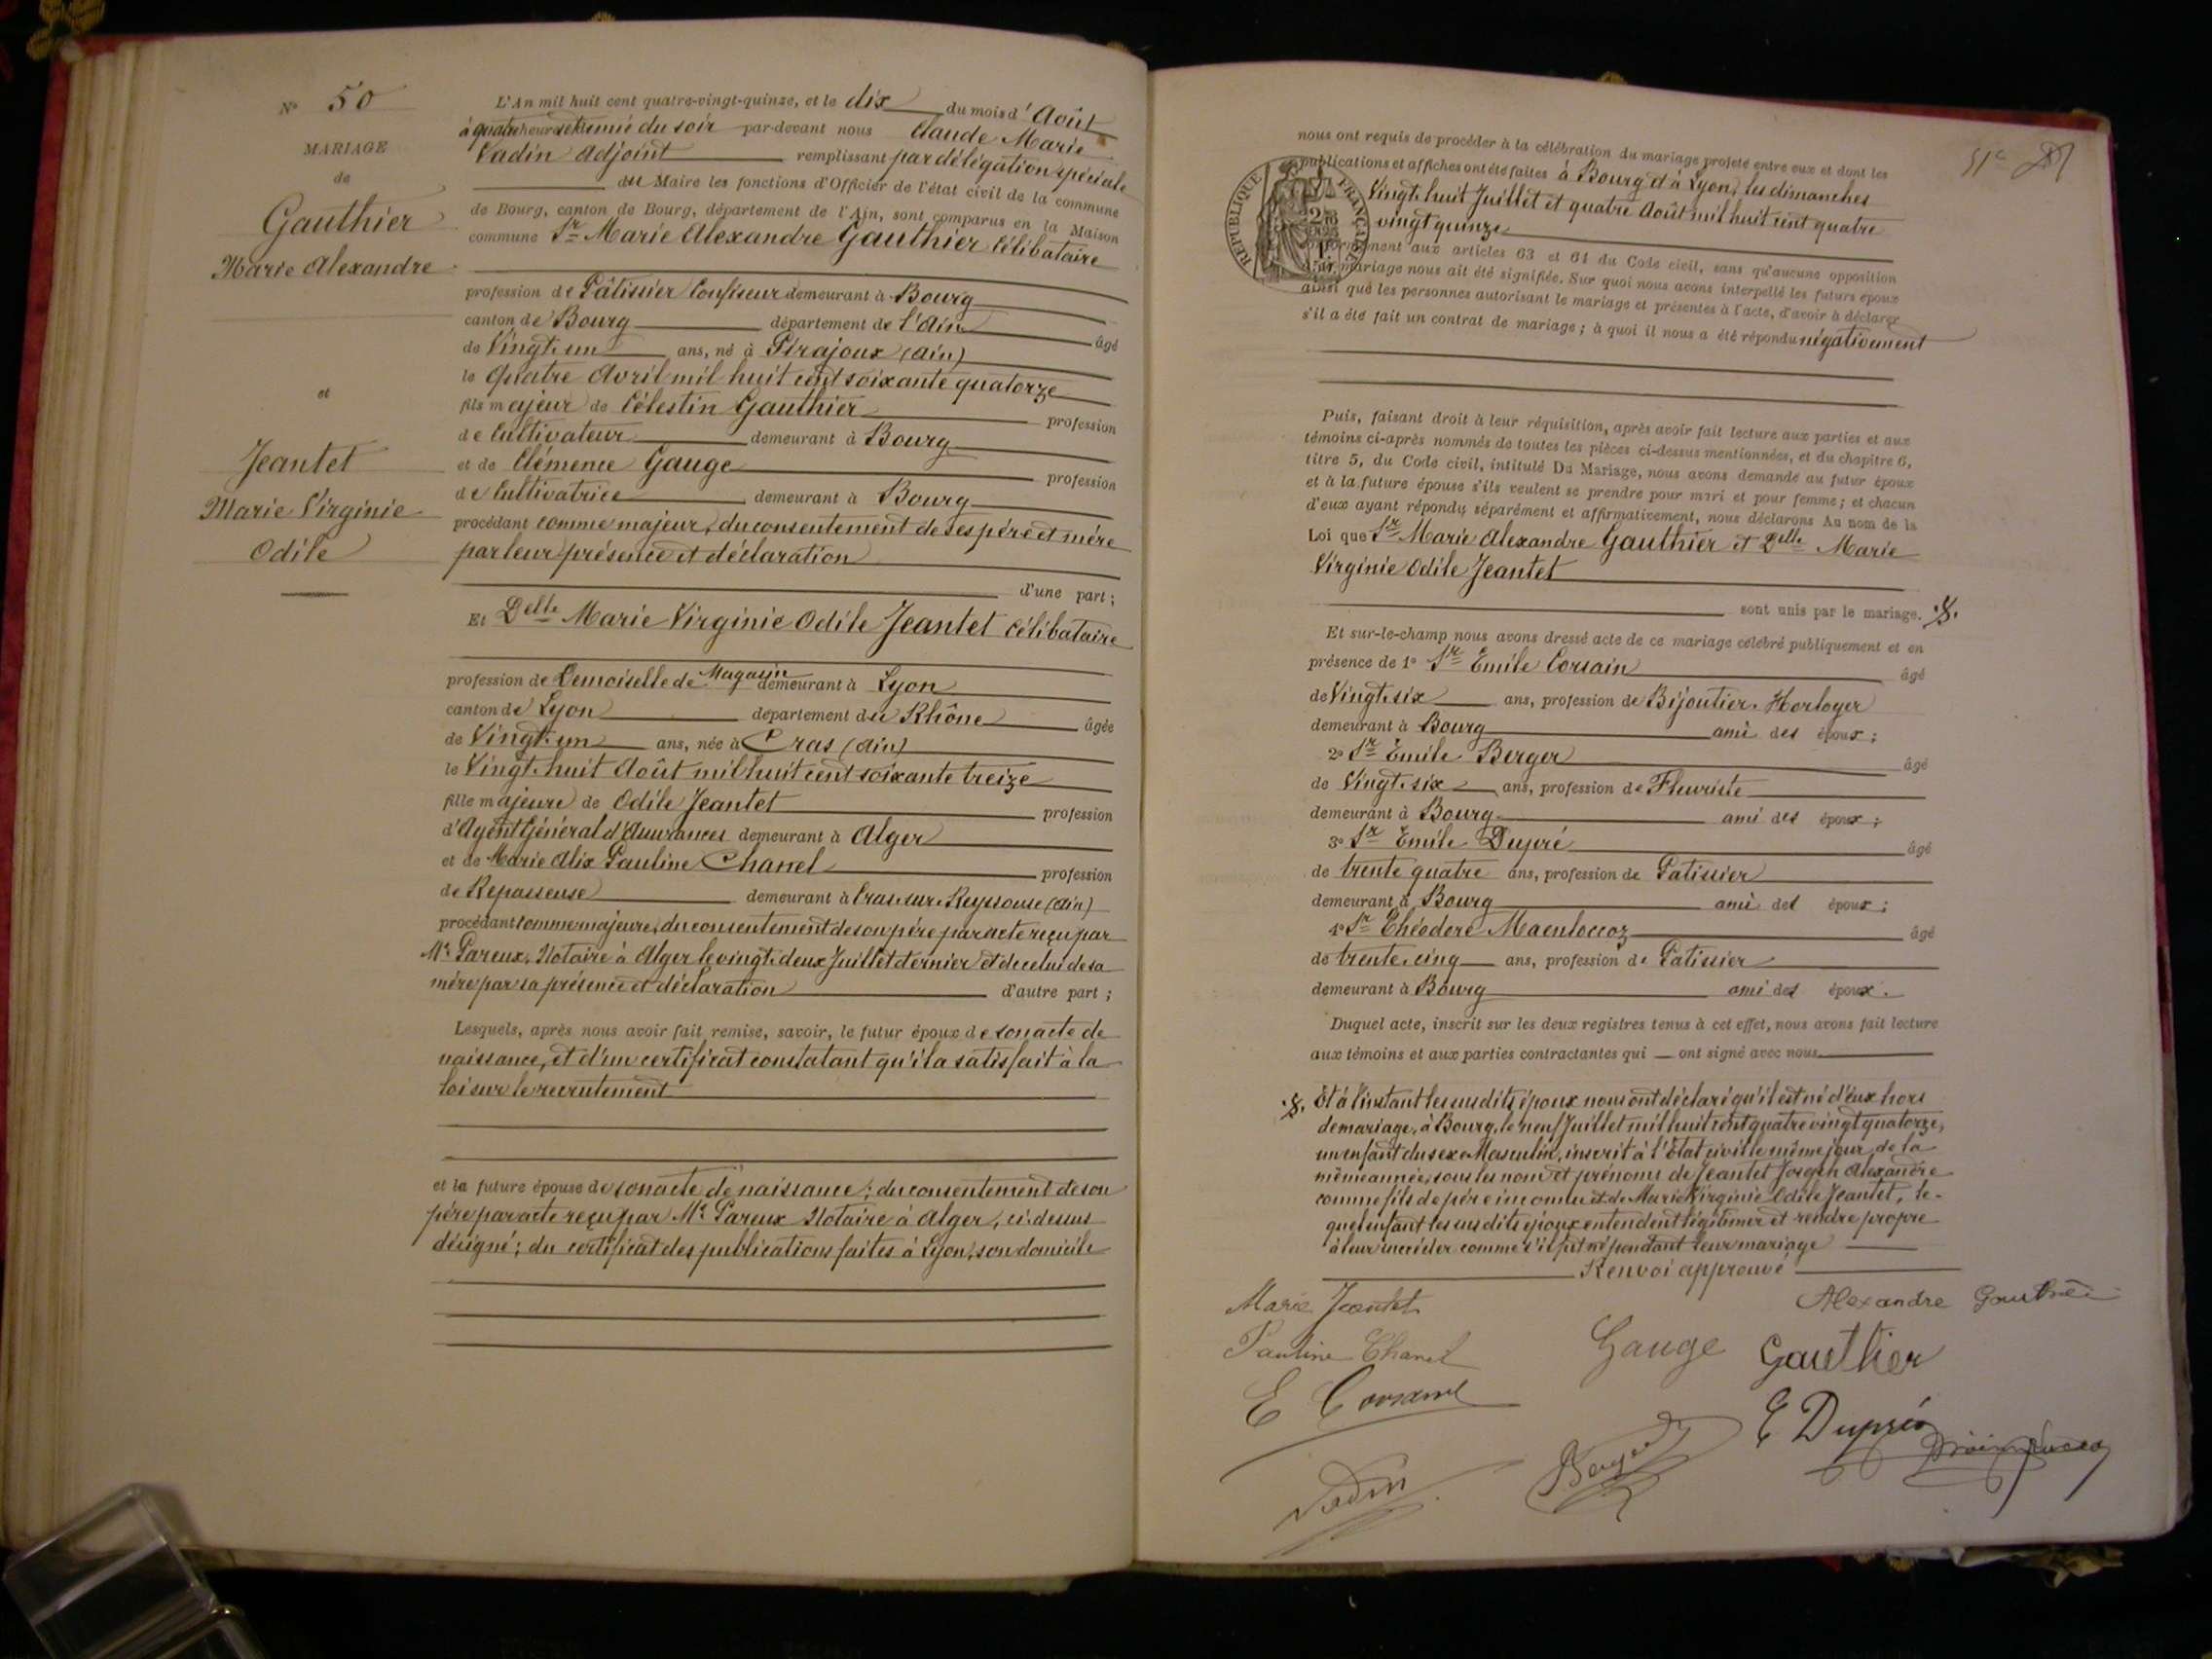 N° 50
MARIAGE
de
Gauthier
Marie Alexandre
et
Jeantet
Marie Virginie
Odile
L'An mil huit cent quatre-vingt-quinze, et le dix du mois d'Août
à quatre heures et demie du soir par-devant nous Claude Marie
Vadin Adjoint remplissant par délégation spéciale
du Maire les fonctions d'Officier de l'état civil de la commune
de Bourg, canton de Bourg, département de l'Ain, sont comparus en la Maison
commune Sr Marie Alexandre Gauthier Célibataire
profession de Pâtissier Confiseur demeurant à Bourg
canton de Bourg département de l'Ain âgé
de Vingt-un ans, né à Pirajoux (Ain)
le quatre Avril mil huit cent soixante quatorze
fils majeur de Célestin Gauthier profession
de Cultivateur demeurant à Bourg
et de Clémence Gauge profession
de Cultivatrice demeurant à Bourg
procédant comme majeur, du consentement de ses père et mère
par leur présence et déclaration
d'une part;
Et Delle Marie Virginie Odile Jeantet Célibataire
profession de Demoiselle de Magasin demeurant à Lyon
canton de Lyon département du Rhône âgée
de Vingt-un ans, née à Cras (Ain)
le Vingt-huit Août mil huit cent soixante treize
fille majeure de Odile Jeantet profession
d'Agent Général d'Assurances demeurant à Alger
et de Marie Alix Pauline Chanel profession
de Repasseuse demeurant à Cras-sur-Reyssouse (Ain)
procédant comme majeure, du consentement de son père par acte reçu par
Me Pareux, Notaire à Alger le vingt-deux Juillet dernier et de celui de sa
mère par sa présence et déclaration d'autre part;
Lesquels, après nous avoir fait remise, savoir, le futur époux de son acte de
naissance, et d'un certificat constatant qu'il a satisfait à la
loi sur le recrutement
et la future épouse de son acte de naissance; du consentement de son
père par acte reçu par Me Pareux Notaire à Alger, ci-dessus
désigné; du certificat des publications faites à Lyon, son domicile
51e
nous ont requis de procéder à la célébration du mariage projeté entre eux et dont les
publications et affiches ont été faites à Bourg et à Lyon, les dimanches
Vingt-huit Juillet et quatre Août mil huit cent quatre
vingt quinze
RÉPUBLIQUE FRANÇAISE
conformément aux articles 63 et 64 du Code civil, sans qu'aucune opposition
audit mariage nous ait été signifiée. Sur quoi nous avons interpellé les futurs époux
ainsi que les personnes autorisant le mariage et présentes à l'acte, d'avoir à déclarer
s'il a été fait un contrat de mariage; à quoi il nous a été répondu négativement
Puis, faisant droit à leur réquisition, après avoir fait lecture aux parties et aux
témoins ci-après nommés de toutes les pièces ci-dessus mentionnées, et du chapitre 6,
titre 5, du Code civil, intitulé Du Mariage, nous avons demandé au futur époux
et à la future épouse s'ils veulent se prendre pour mari et pour femme; et chacun
d'eux ayant répondu séparément et affirmativement, nous déclarons Au nom de la
Loi que Sr Marie Alexandre Gauthier et Delle Marie
Virginie Odile Jeantet
sont unis par le mariage.
Et sur-le-champ nous avons dressé acte de ce mariage célébré publiquement et en
présence de 1° Sr Emile Corsain âgé
de Vingt-six ans, profession de Bijoutier-Horloger
demeurant à Bourg ami des époux;
2° Sr Emile Berger âgé
de Vingt-six ans, profession de Fleuriste
demeurant à Bourg ami des époux;
3° Sr Emile Dupré âgé
de trente quatre ans, profession de Patissier
demeurant à Bourg ami des époux;
4° Sr Théodore Maenloccoz âgé
de trente-cinq ans, profession de Patissier
demeurant à Bourg ami des époux.
Duquel acte, inscrit sur les deux registres tenus à cet effet, nous avons fait lecture
aux témoins et aux parties contractantes qui ont signé avec nous
Et à l'instant les susdits époux nous ont déclaré qu'il est né d'eux hors
de mariage, à Bourg, le neuf Juillet mil huit cent quatre vingt quatorze,
un enfant du sexe Masculin, inscrit à l'État civil le même jour, de la
même année, sous les nom et prénoms de Jeantet Joseph Alexandre
comme fils de père inconnu et de Marie Virginie Odile Jeantet, le-
quel enfant les susdits époux entendent légitimer et rendre propre
à leur succéder comme s'il fut né pendant leur mariage
Renvoi approuvé
Marie Jeantet Alexandre Gauthier
Pauline Chanel Gauge Gauthier
E Corsain E Dupré
Vadin Berger